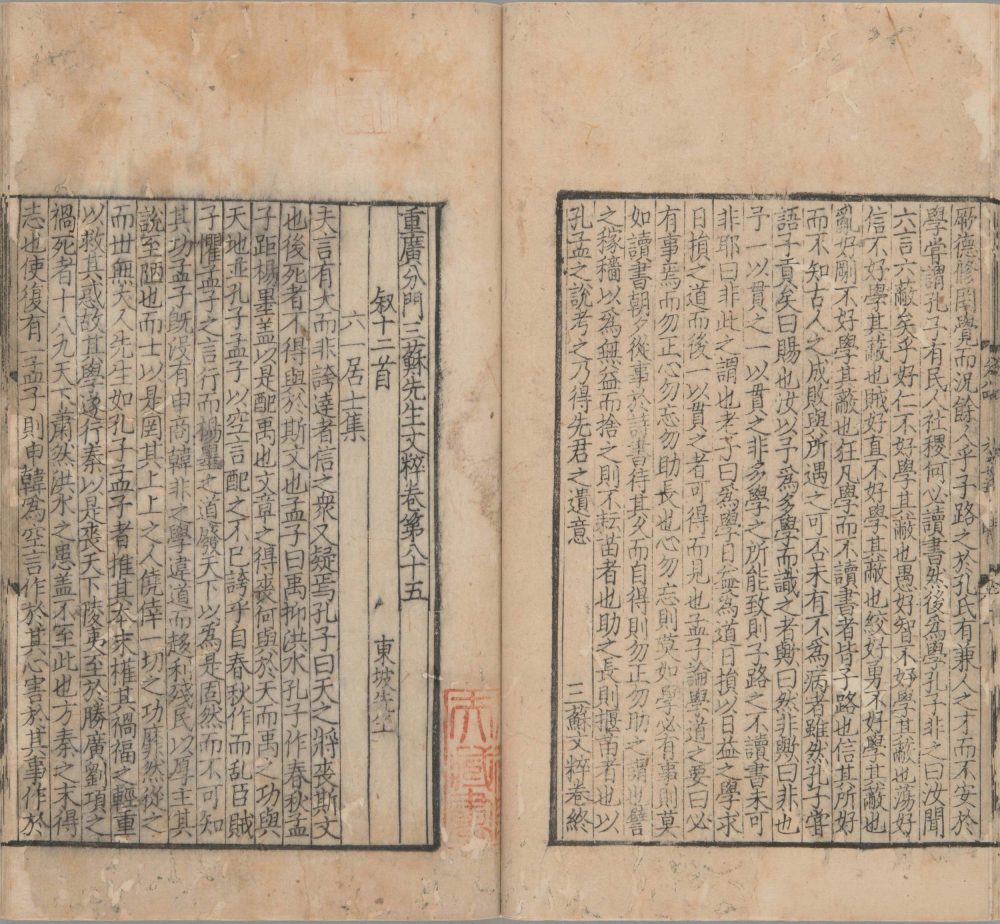 厥德修罔覺而況餘人乎子路之於孔氏有兼人之才而不安於
學嘗謂孔子有民人社稷何必讀書然後為學孔子非之曰汝聞
六言六蔽矣乎好仁不好學其蔽也愚好智不好學其蔽也蕩好
信不好學其蔽也賊好直不好學其蔽也絞好勇不好學其蔽也
亂好剛不好學其蔽也狂凡學而不讀書者皆子路也信其所好
而不知古人之成敗與所遇之可否未有不為病者雖然孔子嘗
語子貢矣曰賜也汝以予爲多學而識之者歟曰然非歟曰非也
予一以貫之一以貫之非多學之所能致則子路之不讀書未可
非耶曰非此之謂也老子曰爲學日益爲道日損以日益之學求
日損之道而後一以貫之者可得而見也孟子論學道之要曰必
有事焉而勿正心勿忘勿助長也心勿忘則莫如學必有事則莫
如讀書朝夕從事於詩書待其久而自得則勿正勿助之謂也譬
之稼穡以爲無益而捨之則不耘苗者也助之長則揠苗者也以
孔孟之說考之乃得先君之遺意
三蘇文粹卷終
重廣分門三蘇先生文粹卷第八十五
敘十二首 東坡先生
六一居士集
夫言有大而非誇達者信之衆又疑焉孔子曰天之將喪斯文
也後死者不得與於斯文也孟子曰禹抑洪水孔子作春秋孟
子距楊墨盖以是配禹也文章之得喪何與於天而禹之功與
天地並孔子孟子以空言配之不已誇乎自春秋作而乱臣賊
子懼孟子之言行而楊墨之道廢天下以為是固然而不可知
其功孟子旣沒有申商韓非之學違道而趍利殘民以厚主其
說至陋也而士以是罔其上上之人僥倖一切之功靡然從之
而丗無大人先生如孔子孟子者推其本末權其禍福之輕重
以救其惑故其學遂行秦以是喪天下陵夷至於勝廣劉項之
禍死者十八九天下肅然洪水之愚盖不至此也方秦之未得
志也使復有一孟子則申韓為空言作於其心害於其事作於